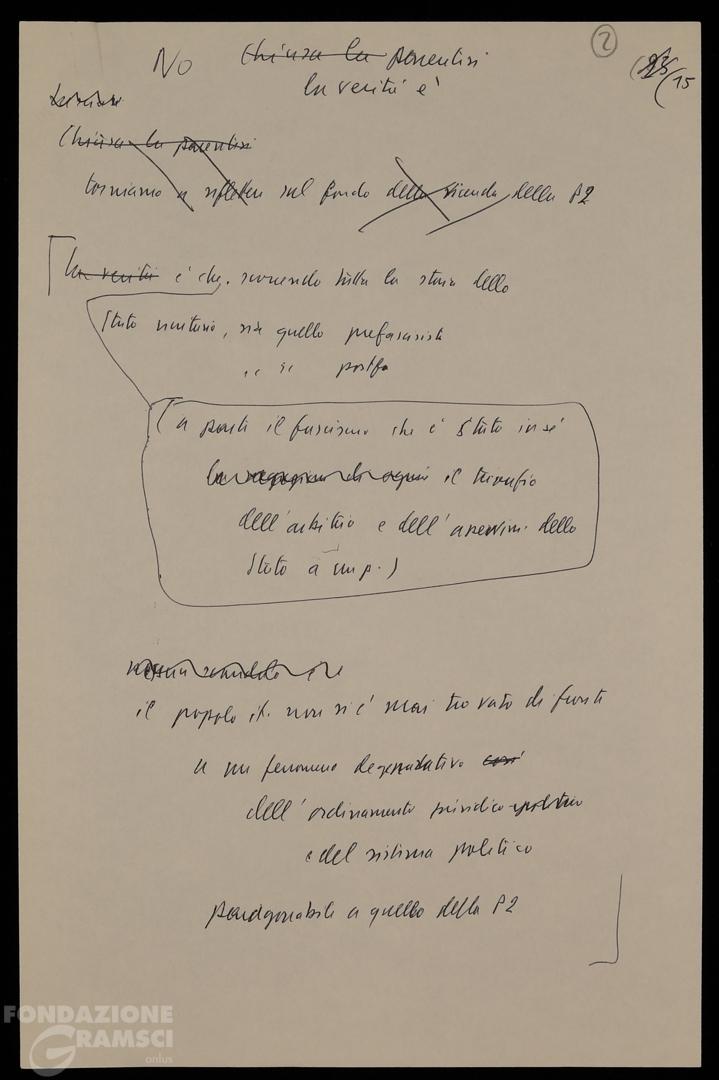 2
NO Chiusa la parentesi
15
la verità è
Chiusa la parentesi
torniamo a riflettere sul fondo della vicenda della P2
La verità è che, scorrendo tutta la storia dello
Stato unitario, sia quello prefascista
" " postfa
(a parte il fascismo che è stato in sé
il trionfio
dell'arbitrio e dell' dello
Stato a un p.)
nessun scandalo
il popolo it. non si è mai trovato di fronte
a un fenomeno degenerativo così
dell'ordinamento giuridico
e del sistema politico
paragonabile a quello della P2
FONDAZIONE
GRAMSCI
onlus